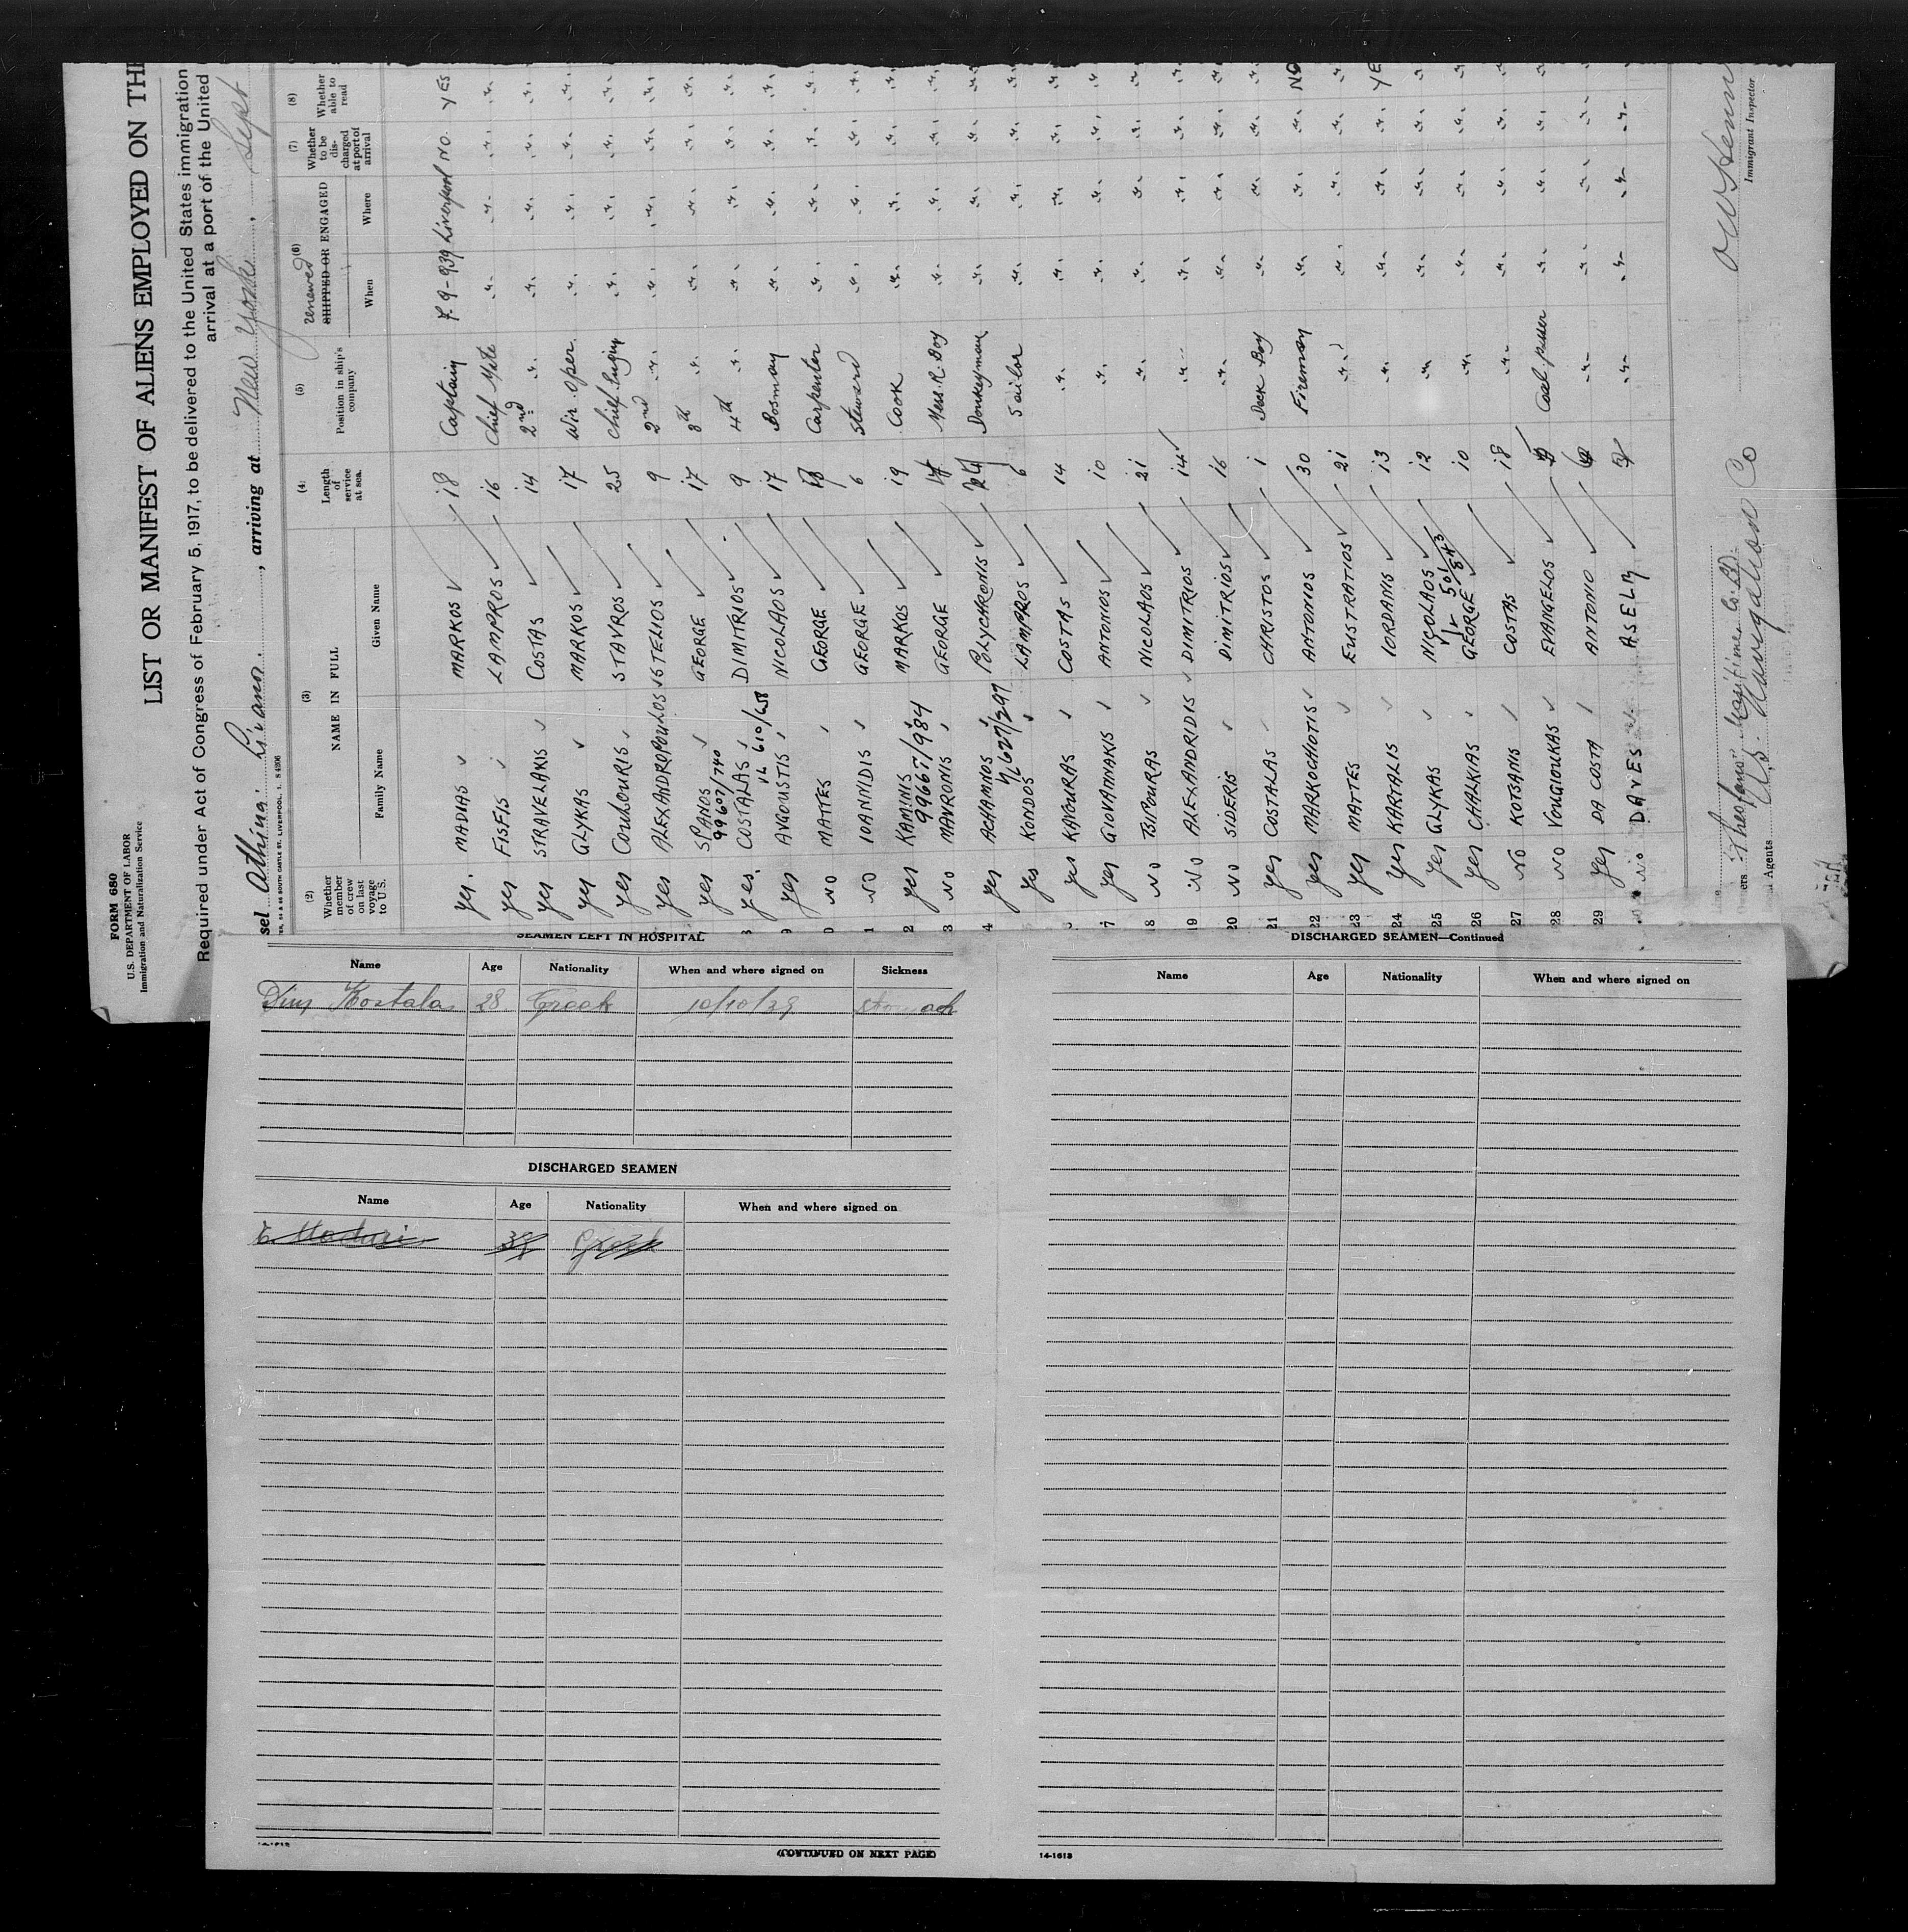 FORM 680
U.S. DEPARTMENT OF LABOR
Immigration and Naturalization Service
LIST OR MANIFEST OF ALIENS EMPLOYED ON THE
Required under Act of Congress of February 5, 1917, to be delivered to the United States immigration
arrival at a port of the United
sel Athina Livano., arriving at New York, Sept
(2) Whether member of crew on last voyage to U.S.
(3) NAME IN FULL
Family Name Given Name
(4) Length of service at sea.
(5) Position in ship's company
(6) renewed SHIPPED OR ENGAGED
When Where
(7) Whether to be discharged at port of arrival
(8) Whether able to read
yes. MADIAS MARKOS 18 Captain 7-9-939 Liverpool NO. YES
yes FISFIS LAMPROS 16 Chief Mate " " " "
yes STRAVELAKIS COSTAS 14 2nd " " " " "
yes GLYKAS MARKOS 17 Wir. Oper. " " " "
yes COUKOURIS STAVROS 25 Chief Engin " " " "
yes ALEXANDROPOULOS STELIOS 9 2nd " " " " "
yes SPANOS GEORGE 17 3th " " " " "
99607/740
8 yes. COSTALAS DIMITRIOS 9 4th " " " " "
16 610/658
9 yes AVGOUSTIS NICOLAOS 17 Bosman " " " "
0 NO MATTES GEORGE Carpenter " " " "
1 NO IOANNIDIS GEORGE 6 Steward " " " "
2 yes KAMINIS MARKOS 19 Cook " " " "
99667/984
3 NO MAVRONIS GEORGE Mess. R. Boy " " " "
4 yes ACHAMNOS POLYCHRONIS Donkeyman " " " "
7/627/297
yes KONDOS LAMPROS 6 Sailor " " " "
yes KAVOURAS COSTAS 14 " " " " "
7 yes GIOVANNAKIS ANTONIOS 10 " " " " "
18 NO TSIPOURAS NICOLAOS 21 " " " " "
19 NO ALEXANDRIDIS DIMITRIOS 14 " " " " "
20 NO SIDERIS DIMITRIOS 16 " " " " "
21 yes COSTALAS CHRISTOS 1 Deck Boy " " " "
22 yes MARKOCHIOTIS ANTONIOS 30 Fireman " " " NO
23 yes MATTES EUSTRATIOS 21 " " " " "
24 yes KARTALIS IORDANIS 13 " " " " YE
25 yes GLYKAS NICOLAOS 12 " " " " "
26 yes CHALKIAS GEORGE 10 " " " " "
27 NO KOTSANIS COSTAS 18 " " " " "
28 NO VOUGIOUKAS EVANGELOS Coal passer " " " "
29 yes DA COSTA ANTONIO " " " " "
NO DAVES ASELM " " " " "
Theofano Maritime Co.
Agents
Immigrant Inspector
SEAMEN LEFT IN HOSPITAL
Name Age Nationality When and where signed on Sickness
Dim Kostalas 28 Greek 10/10/39 stomach
DISCHARGED SEAMEN
Name Age Nationality When and where signed on
39 Greek
(CONTINUED ON NEXT PAGE)
DISCHARGED SEAMEN—Continued
Name Age Nationality When and where signed on
14-1613